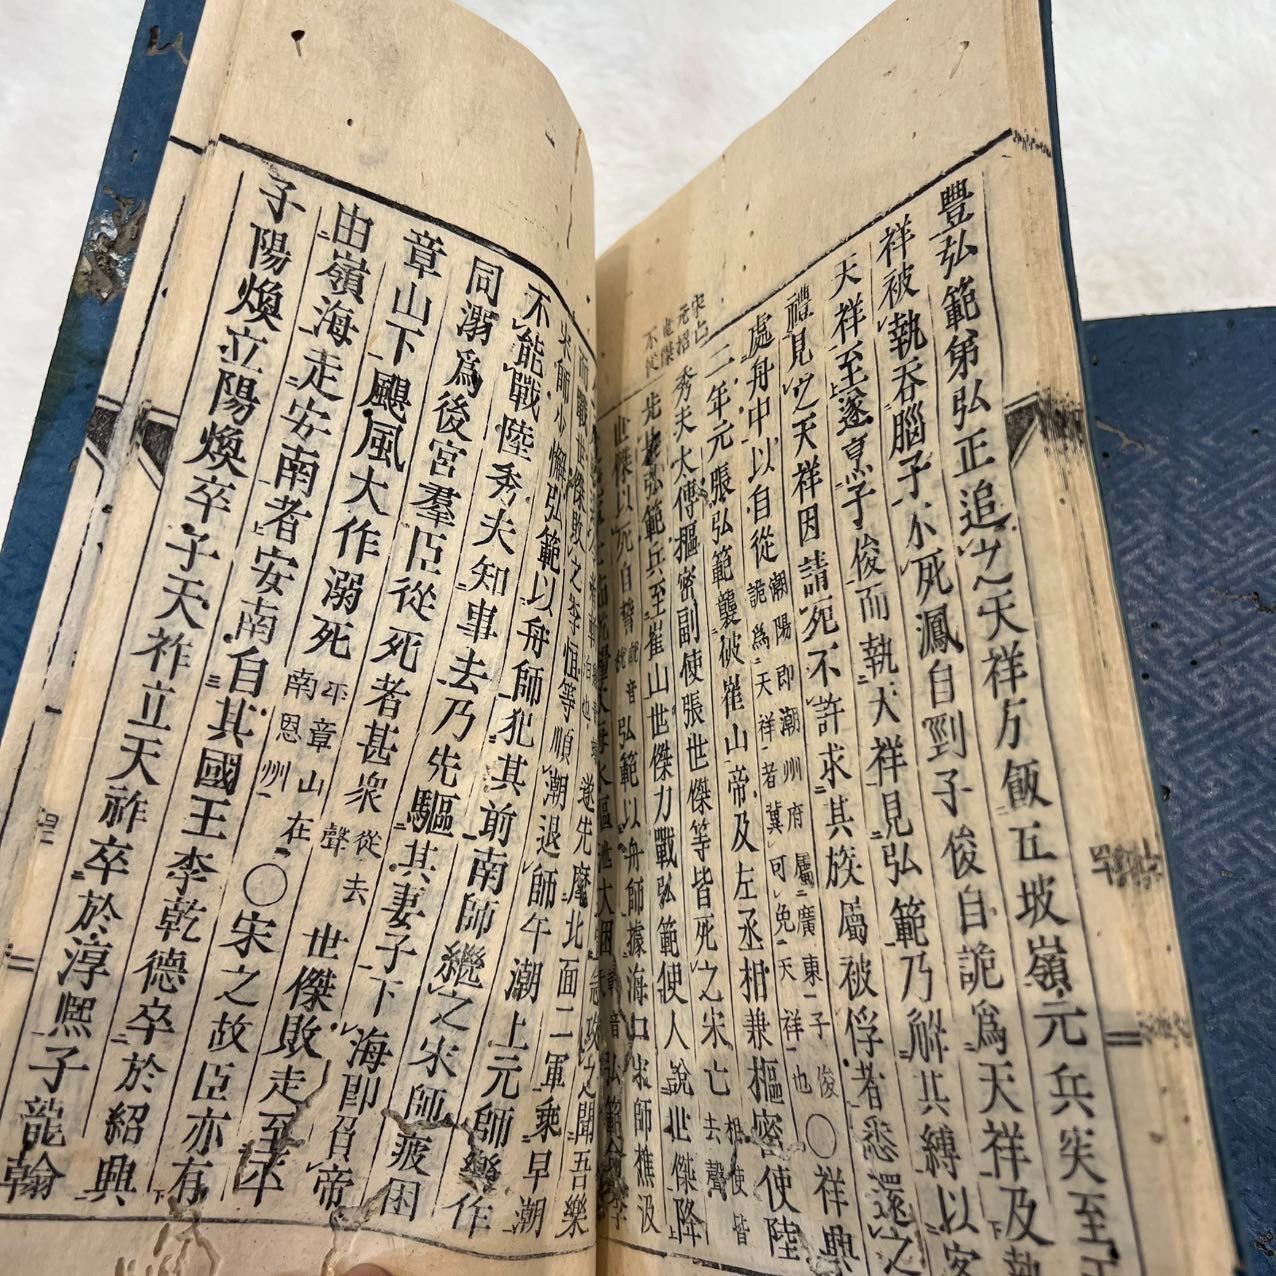 宋亡
元招
世傑
不從
豐弘範弟弘正追之天祥方飯五坡嶺元兵突至子
祥被執吞腦子不死鳳自剄子俊自詭爲天祥及執
天祥至遂烹子俊而執天祥見弘範乃解其縛以客
禮見之天祥因請死不許求其族屬被俘者悉還之
處舟中以自從潮陽即潮州府屬廣東子俊詭爲天祥者冀可免天祥也○祥興
二年元張弘範襲破崖山帝及左丞相兼樞密使陸
秀夫太傅樞密副使張世傑等皆死之宋亡相使皆去聲
先是弘範兵至崖山世傑力戰弘範使人說世傑降
世傑以死自誓說音稅弘範以舟師據海口宋師樵汲
遂先麾北面二軍乘早潮
而戰世傑敗之李恒等順潮退師午潮上元師樂作
宋師不懈弘範以舟師犯其前南師繼之宋師疲困
不能戰陸秀夫知事去乃先驅其妻子下海即負帝
同溺爲後宮羣臣從死者甚衆從去聲世傑敗走至平
章山下颶風大作溺死平章山在南恩州○宋之故臣亦有
由嶺海走安南者安南自其國王李乾德卒於紹興
子陽煥立陽煥卒子天祚立天祚卒於淳熙子龍翰